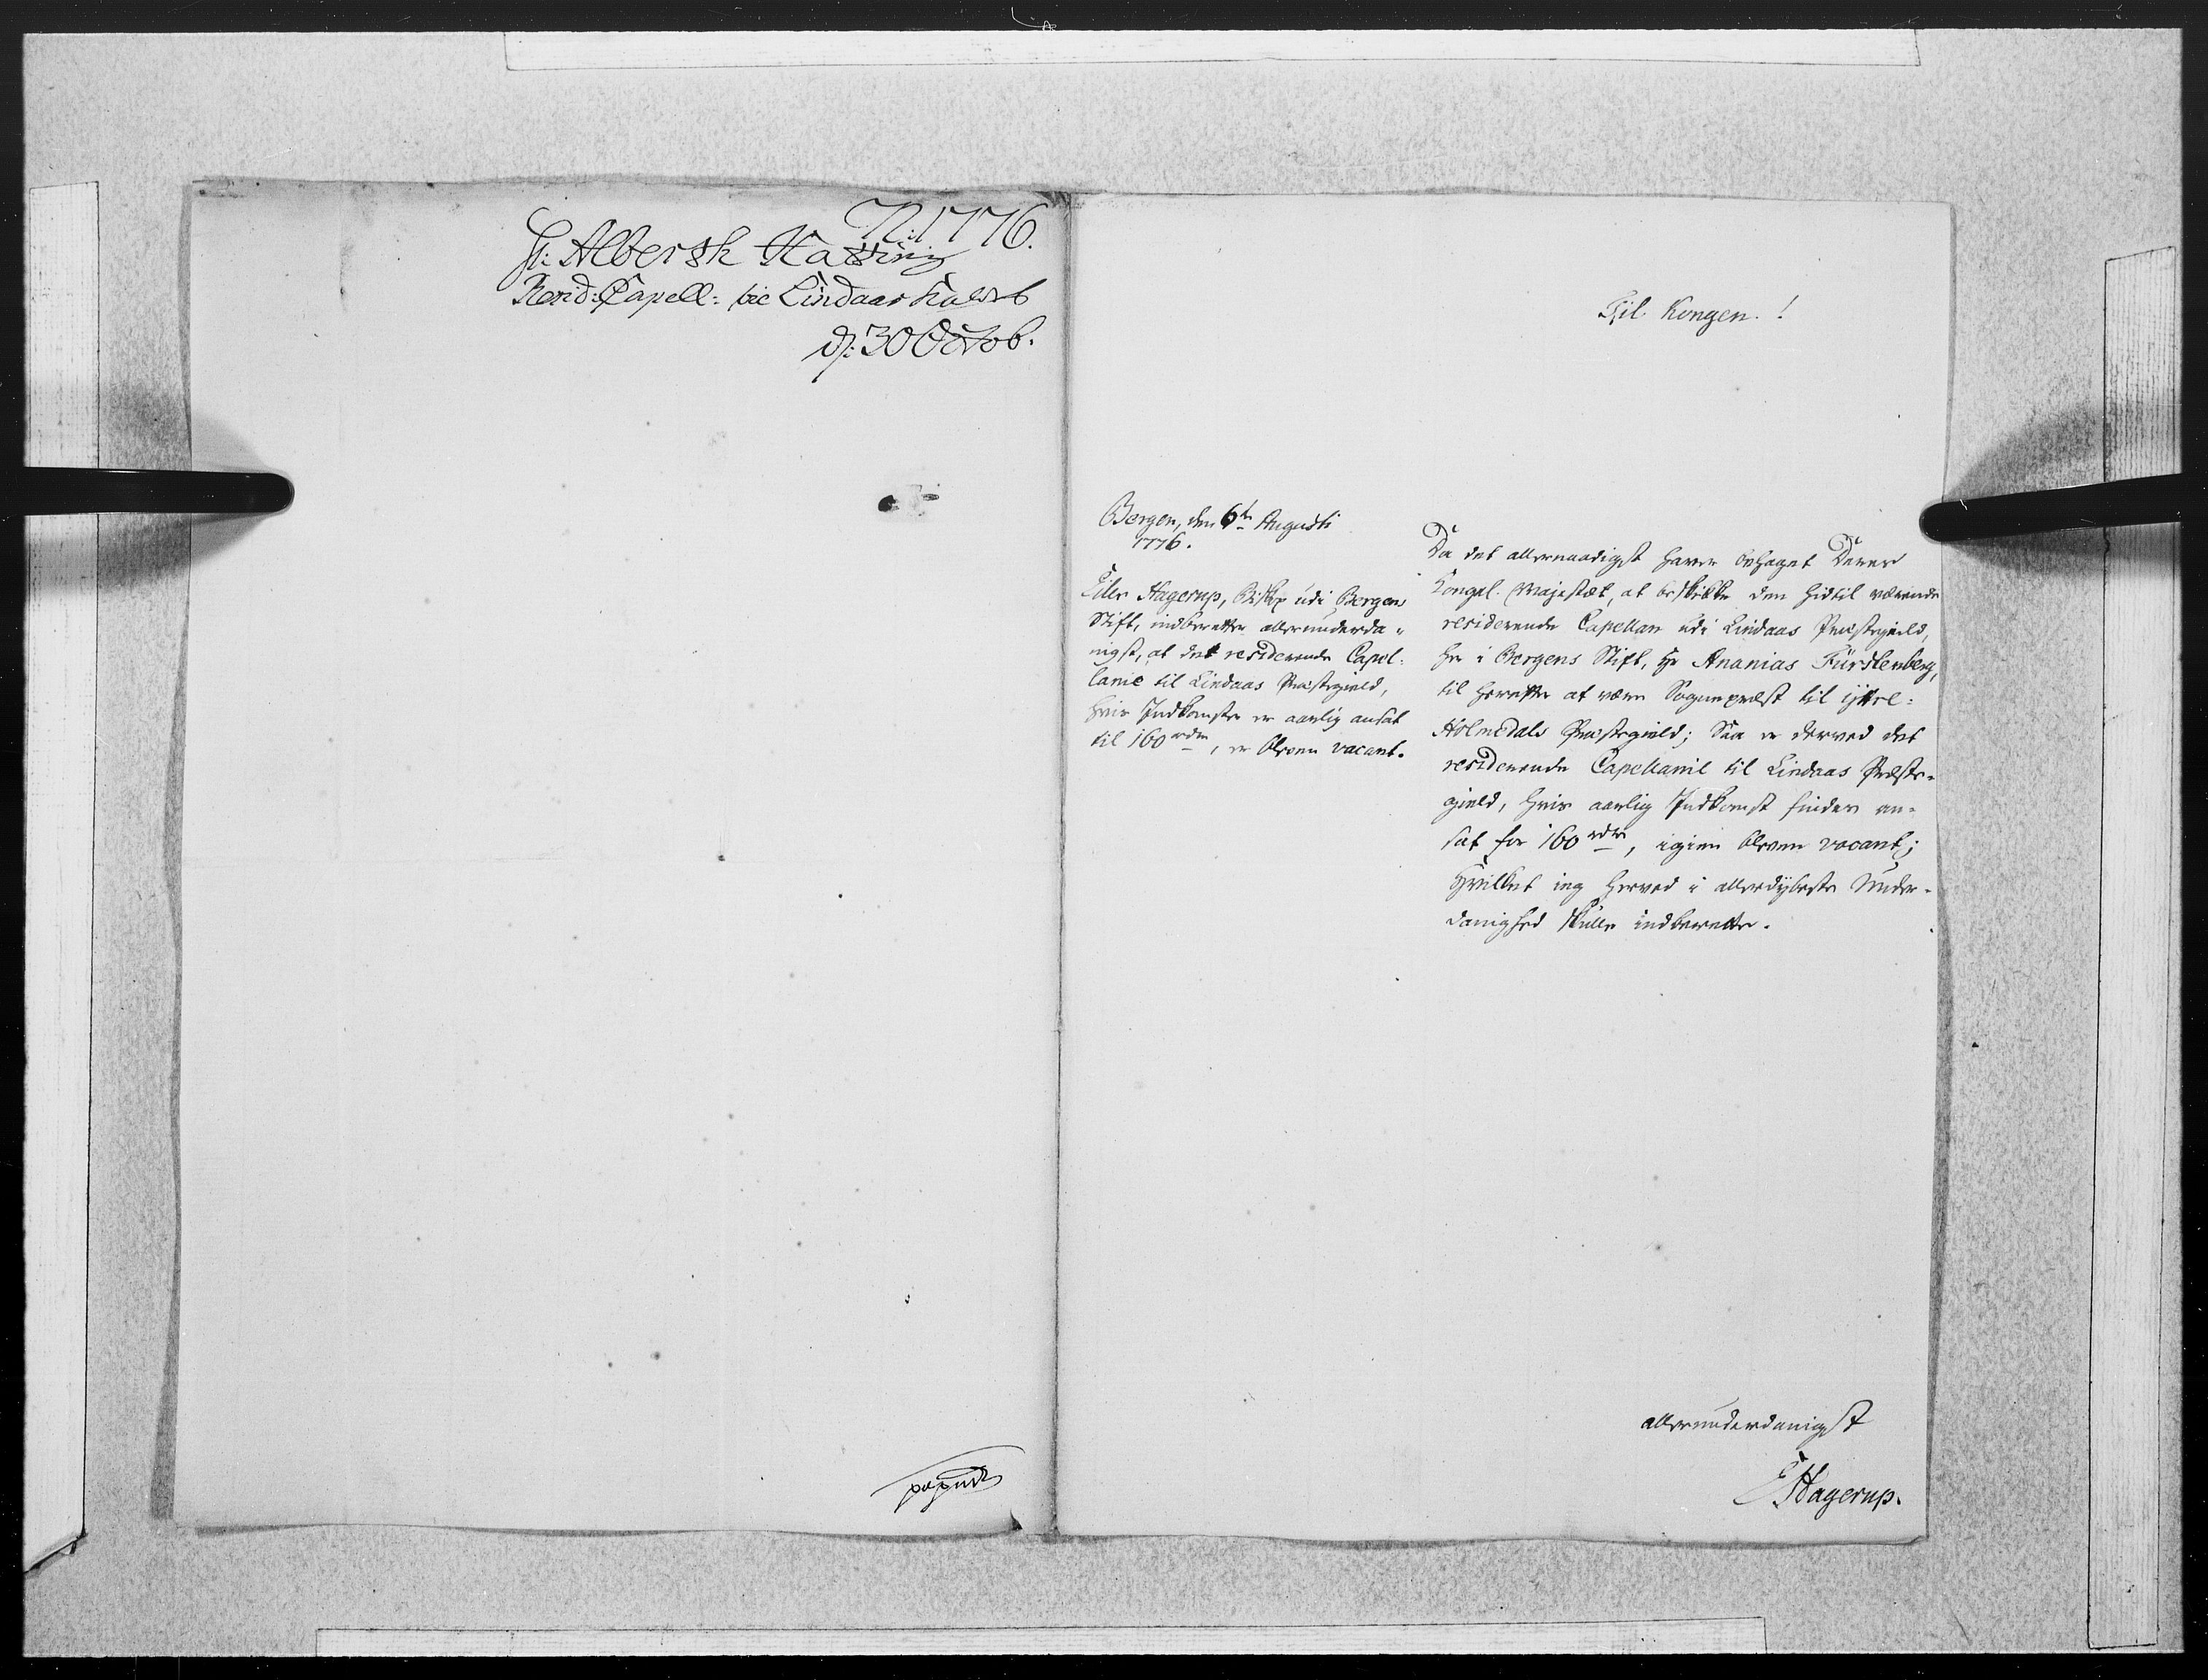 N: 1776.
Hr: Albersk Hassing
Resid: Capell: bie Lindaas Kaldet
d: 30 Octob.
Til Kongen.!
Bergen, den 6te Augusti
1776.
Eiler Hagerup, Biskop udi Bergens
Stift, indberetter allerunderda-
nigst, at det residerende Capel-
lanie til Lindaas Præstegield,
hvis Indkomster er aarlig ansat
til 160 rdlr, er bleven vacant.
Da det allernaadigst haver behaget Deres
Kongel. Majestæt, at beskikke den hidtil værende
residerende Capellan udi Lindaas Præstegield,
her i Bergens Stift, Hr Ananias Fürstenberg,
til herefter at være Sognepræst til Yttre-
Holmedals Præstegield; Saa er derved det
residerende Capellanie til Lindaas Præste-
gield, hvis aarlig Indkomst findes an-
sat for 160 rdlr, igien bleven vacant;
Hvilket ieg herved i allerdybeste Under-
danighed skulle indberette.
allerunderdanigst
EHagerup.